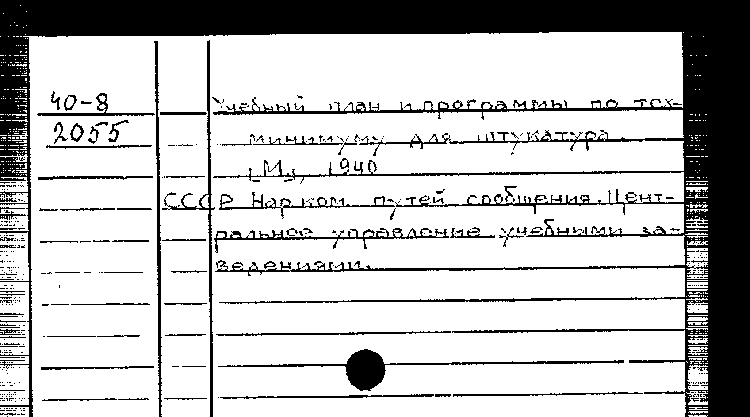 40-8
2055
Учебный план и программы по тех-
минимуму для штукатура.
[М.], 1940
СССР Нарком. путей сообщения. Цент-
ральное управление учебными за-
ведениями.